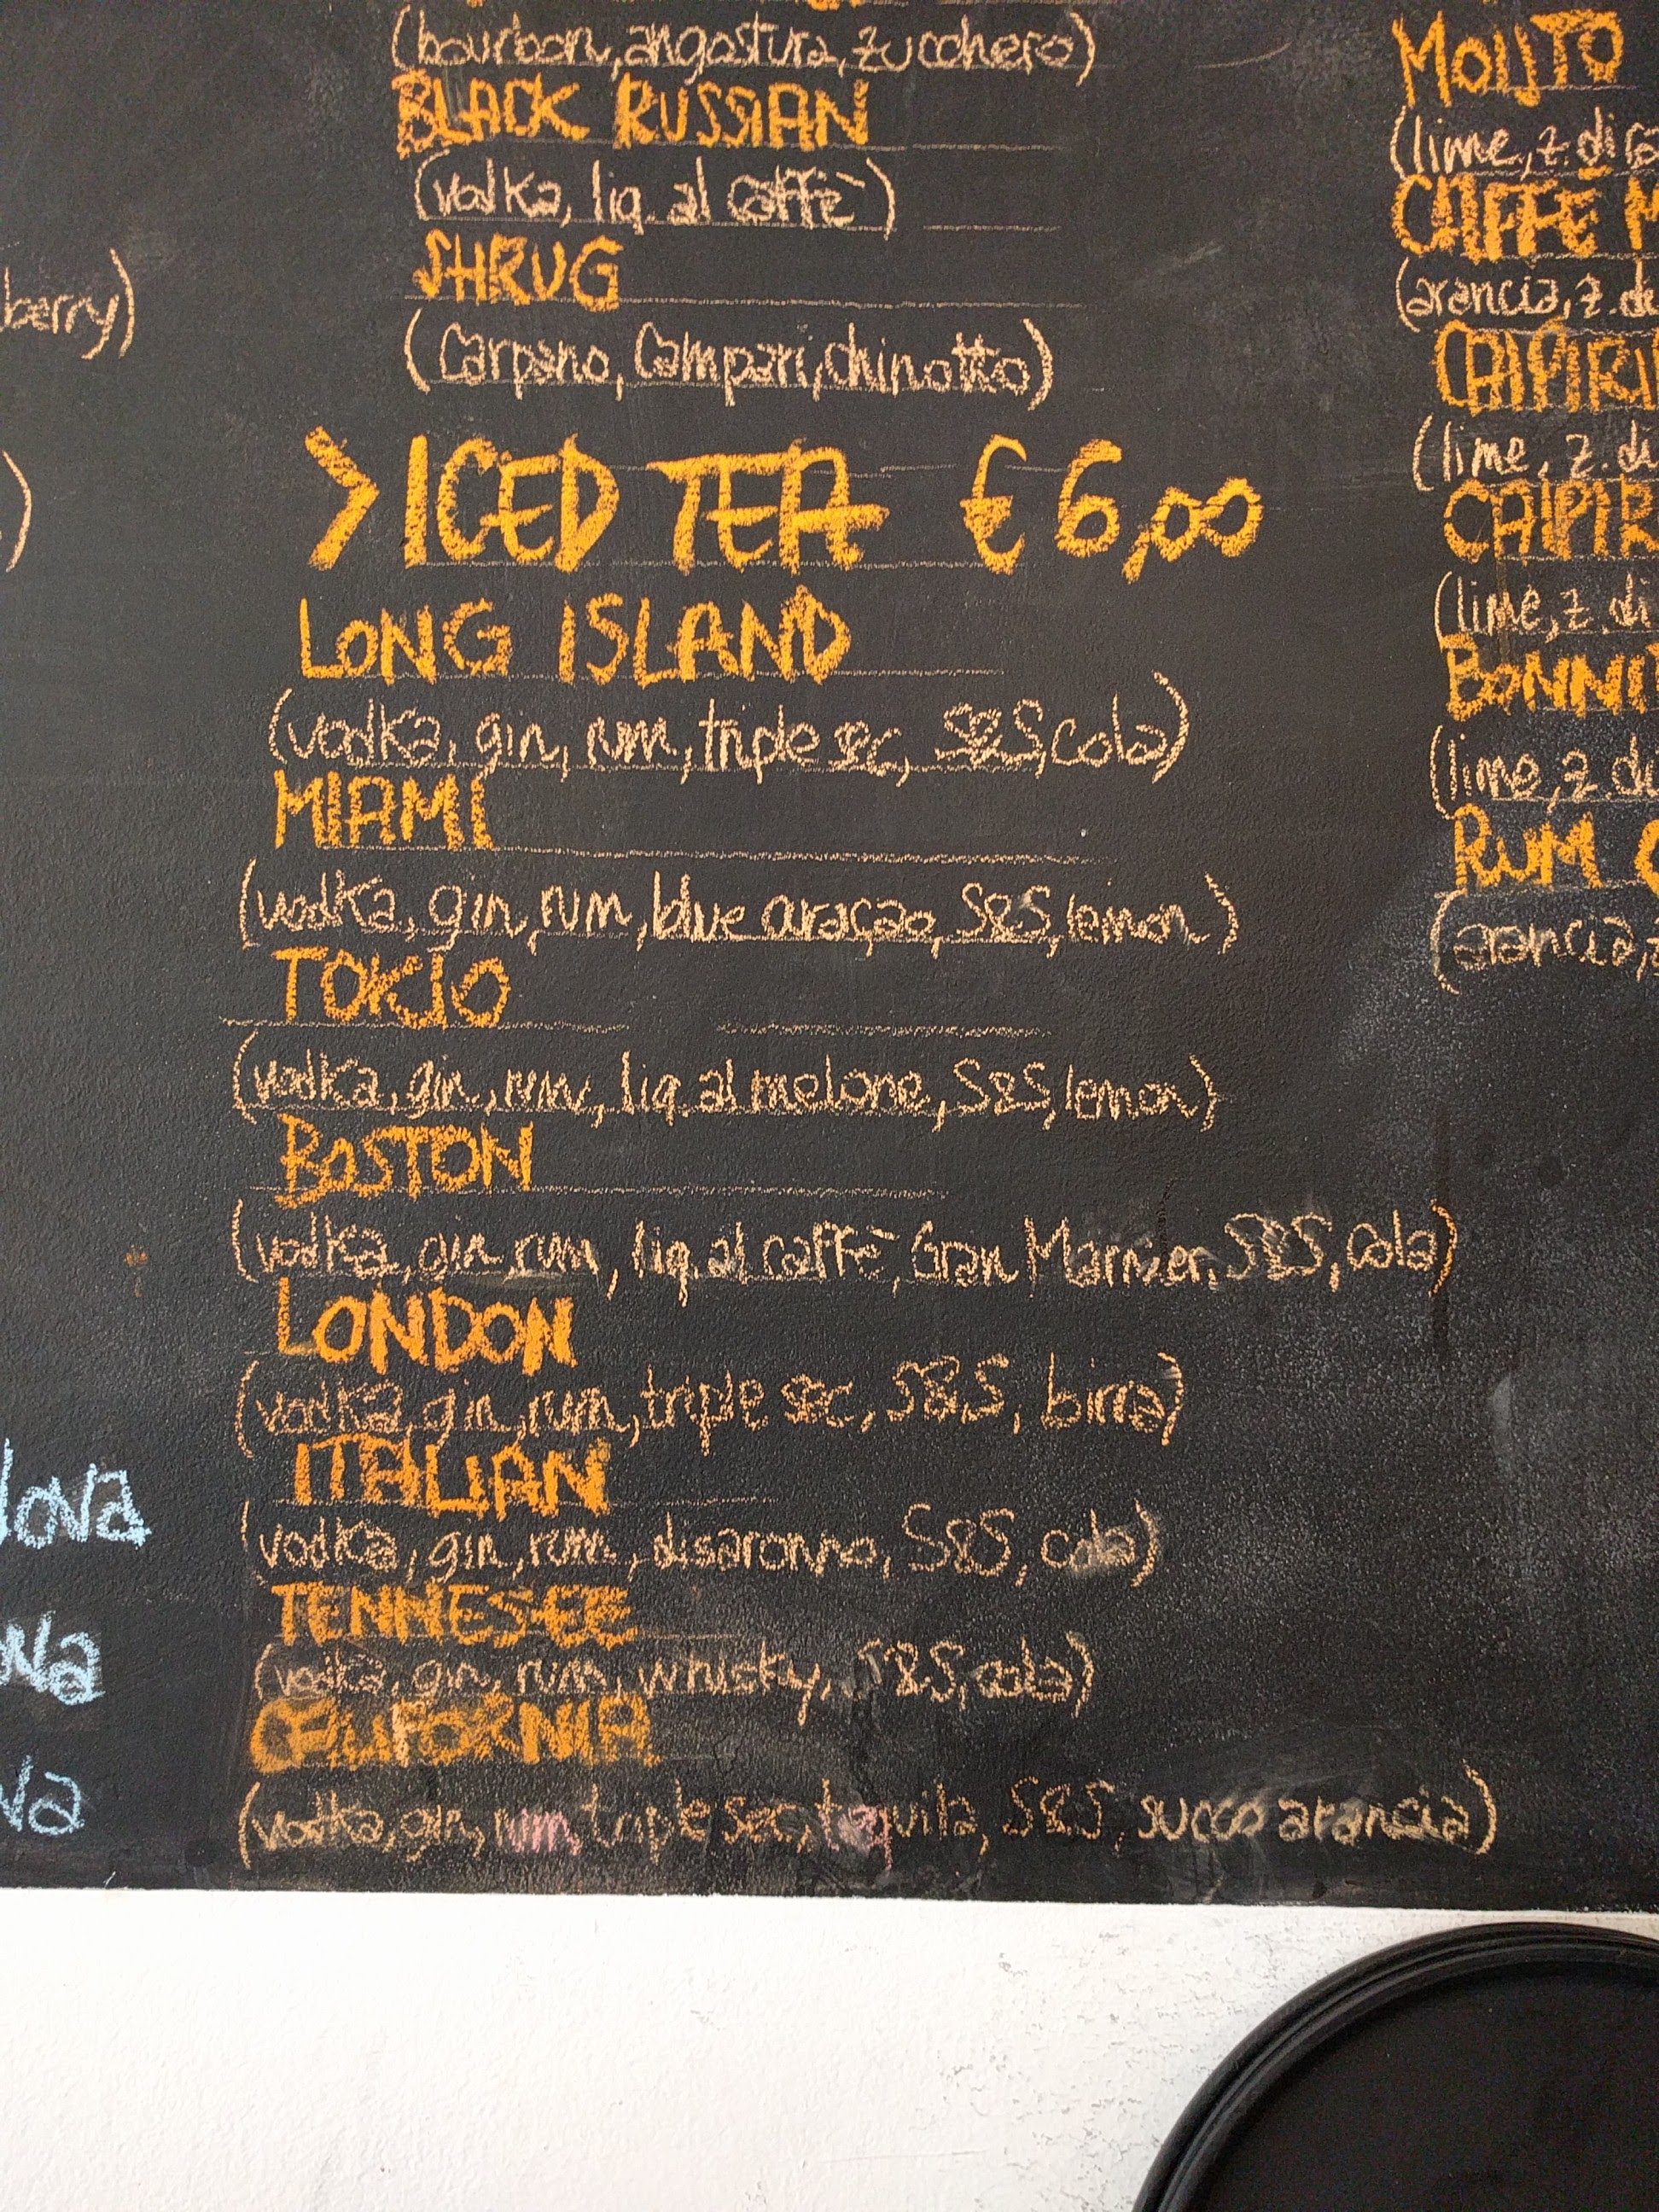 berry)
)
lova
ova
va
(bourbon, angostura, zucchero)
BLACK RUSSIAN
(vodka, liq. al caffè)
SHRUG
(Carpano, Campari, chinotto)
> ICED TEA € 6,00
LONG ISLAND
(vodka, gin, rum, triple sec, S&S, cola)
MIAMI
(vodka, gin, rum, blue curaçao, S&S, lemon)
TOKIO
(vodka, gin, rum, liq. al melone, S&S, lemon)
BOSTON
(vodka, gin, rum, liq. al caffè, Gran Marnier, S&S, cola)
LONDON
(vodka, gin, rum, triple sec, S&S, birra)
ITALIAN
(vodka, gin, rum, disaronno, S&S, cola)
TENNESEE
(vodka, gin, rum, whisky, S&S, cola)
CALIFORNIA
(vodka, gin, rum, triple sec, tequila, S&S, succo arancia)
MOIJTO
(lime, z. di ca
CAIFFÈ M
(arancia, z. di
CAIPIRI
(lime, z. di
CAIPIR
(lime, z. di
BONNI
(lime, z. di
RUM C
(arancia, z